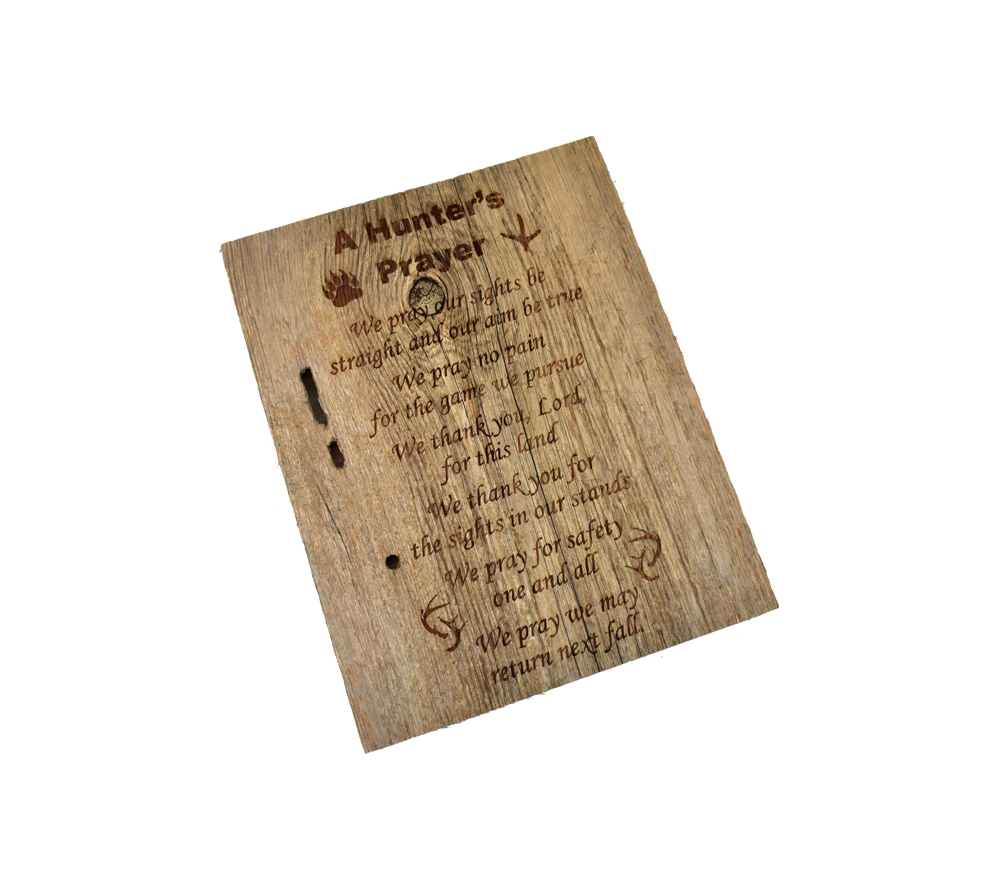 A Hunter's
Prayer
We pray our sights be
straight and our aim be true
We pray no pain
for the game we pursue
We thank you, Lord,
for this land
We thank you for
the sights in our stands
We pray for safety
one and all
We pray we may
return next fall.